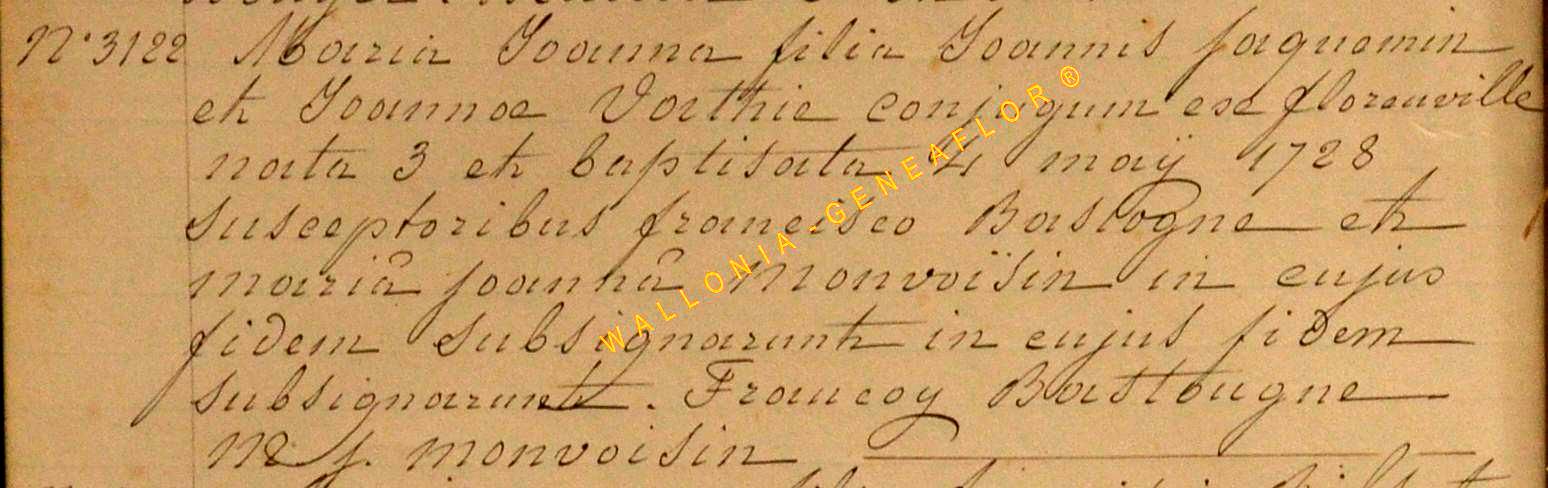 N° 3122 Maria Joanna filia Joannis jaquemin
et Joannæ Vathie conjugum ex florenville
nata 3 et baptisata 4 maÿ 1728
susceptoribus francisco Bastogne et
mariâ joannâ monvoïsin in cujus
fidem subsignarunt in cujus fidem
subsignarunt. Francoy Bastougne
m j. monvoisin
WALLONIA - GENEAFLOR®